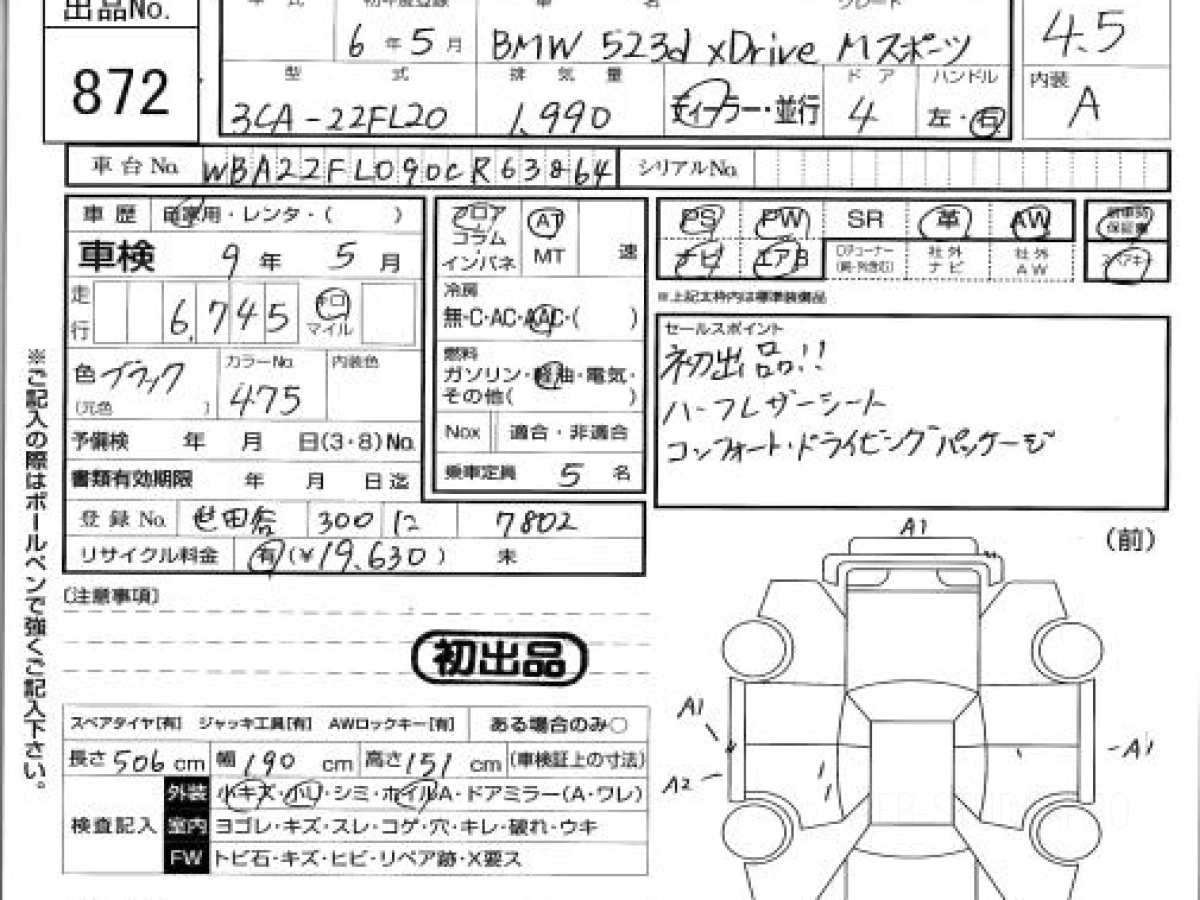 出品No.
872
年 式
初年度登録
車 名
グレード
6 年 5 月
BMW 523d xDrive Mスポーツ
4.5
型 式
排 気 量
ド ア
ハンドル
内装
3CA-22FL20
1,990
ディーラー・並行
4
左・右
A
車台No.
WBA22FL090CR63864
シリアルNo.
車歴
自家用・レンタ・( )
車検
9 年 5 月
走行
6,745
キロ
マイル
色 ブラック
(元色 )
カラーNo.
475
内装色
予備検 年 月 日(3・8)No.
書類有効期限 年 月 日迄
登録No.
世田谷 300 12 7802
リサイクル料金
有(¥19,630) 未
フロア
コラム
インパネ
AT
MT
速
冷房
無・C・AC・AAC・( )
燃料
ガソリン・軽油・電気・
その他( )
Nox
適合・非適合
乗車定員 5 名
PS
PW
SR
革
AW
新車時
保証書
ナビ
エアB
CDチューナー
社外
ナビ
社外
AW
スペアキー
※上記太枠内は標準装備品
セールスポイント
初出品!!
ハーフレザーシート
コンフォート・ドライビングパッケージ
※ご記入の際はボールペンで強くご記入下さい。
(注意事項)
初出品
スペアタイヤ[有] ジャッキ工具[有] AWロックキー[有]
ある場合のみ○
長さ506cm 幅190cm 高さ151cm (車検証上の寸法)
検査記入
外装 小キズ・小凹・シミ・ホイルA・ドアミラー(A・ワレ)
室内 ヨゴレ・キズ・スレ・コゲ・穴・キレ・破れ・ウキ
FW トビ石・キズ・ヒビ・リペア跡・X要ス
A1
(前)
A1
A1
A2